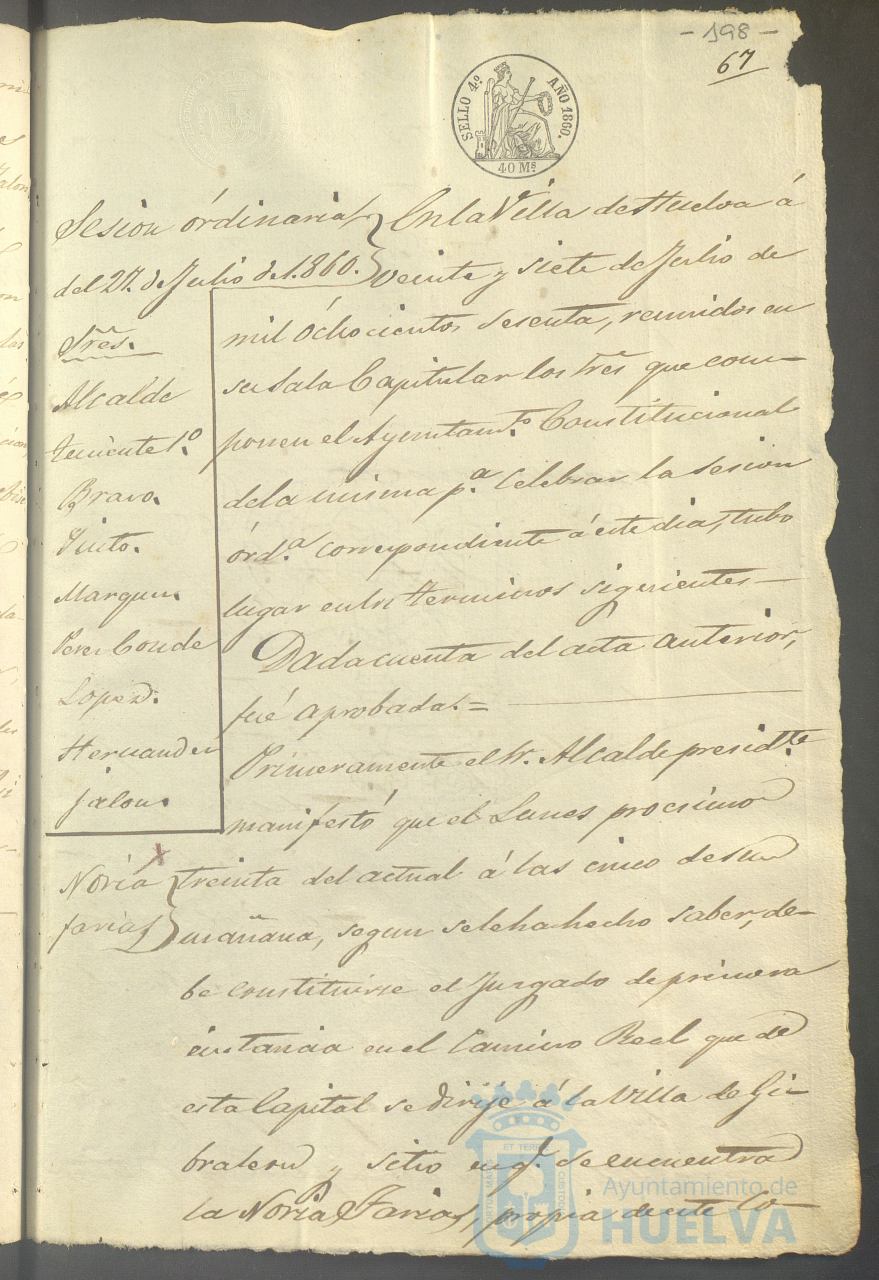 - 198 -
67
SELLO 4º AÑO 1860.
40 Ms
Sesion órdinaria
del 27. de Julio de 1.860.
Sres.
Alcalde
Teniente 1º.
Bravo.
Pinto.
Marquez.
Perez Conde
Lopez.
Hernandez
Jalon.
En la Villa de Huelva á
veinte y siete de Julio de
mil óchocientos sesenta, reunidos en
su Sala Capitular los Sres que com-
ponen el Ayuntamto. Constitucional
de la misma pa. celebrar la sesion
órda. correspondiente á este dia, tubo
lugar en los terminos siguientes—
Dada cuenta del acta anterior,
fué aprobada. =
Primeramente el Sr. Alcalde presidte.
manifestó que el Lunes procsimo
Noria
farias
treinta del actual á las cinco de su
mañana, segun se le ha hecho saber, de-
be constituirse el Juzgado de primera
instancia en el Camino Real que de
esta Capital se dirije á la Villa de Gi-
braleon y sitio en q. se encuentra
la Noria Farias, propia de este Co-
Ayuntamiento de
HUELVA